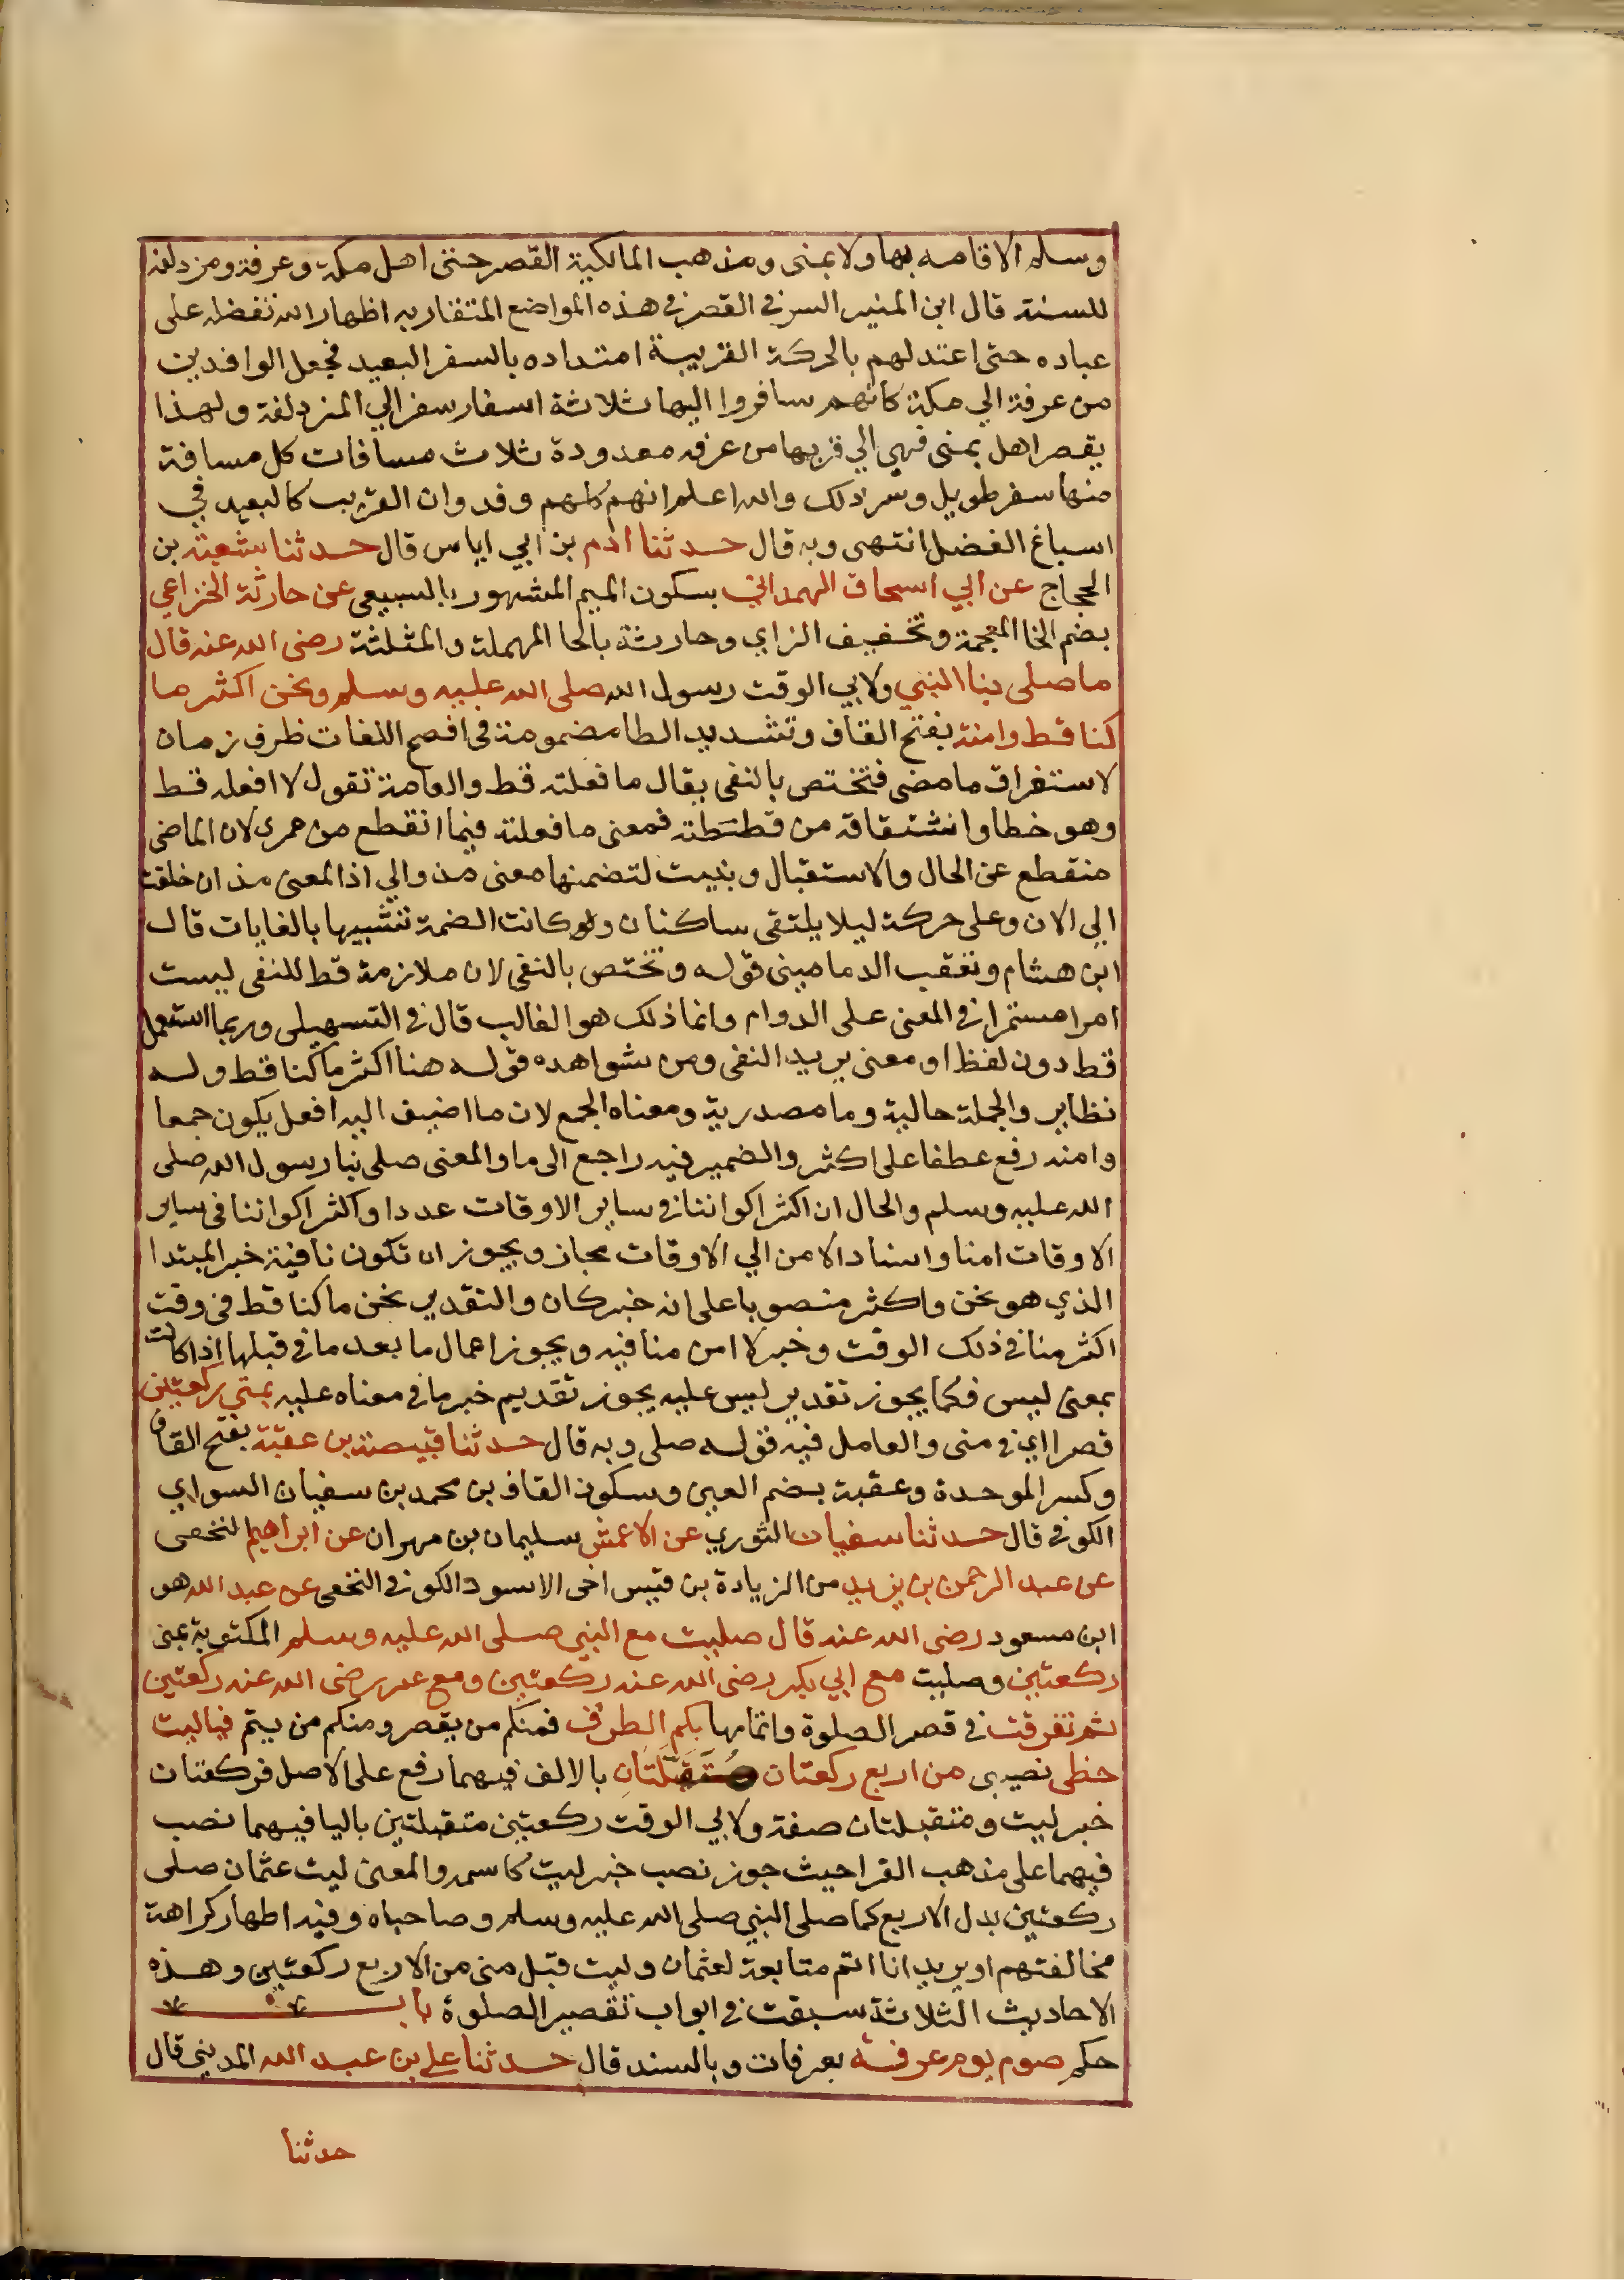 وسلم الاقامه بها ولا بمنى ومذهب المالكية القصر حتى اهل مكة وعرفة ومزدلفة
للسنة قال ابن المنير السر في القصر في هذه المواضع المتقاربه اظهار الله تفضله على
عباده حتى اعتد لهم بالحركة القريبة امتداده بالسفر البعيد فجعل الوافدين
من عرفة الي مكة كانهم سافروا اليها ثلاثة اسفار سفر الي المزدلفة ولهذا
يقصر اهل بمنى فهي الي قربها من عرفه معدودة ثلاث مسافات كل مسافة
منها سفر طويل وسر ذلك والله اعلم انهم كلهم وفد وان القريب كالبعيد في
اسباغ الفضل انتهى وبه قال حدثنا ادم بن ابي اياس قال حدثنا شعبة بن
الحجاج عن ابي اسحاق الهمداني بسكون الميم المشهور بالسبيعي عن حارثة الخزاعي
بضم الخا المعجمة وتخفيف الزاي وحارثة بالحا المهملة والمثلثة رضى الله عنه قال
ما صلى بنا النبي ولابي الوقت رسول الله صلى الله عليه وسلم ونحن اكثر ما
كنا قط وامنه بفتح القاف وتشديد الطا مضمومة في افصح اللغات ظرف زمان
لاستغراق ما مضى فتختص بالنفى يقال ما فعلته قط والعامة تقول لا افعله قط
وهو خطا واشتقاقه من قططته فمعنى ما فعلته فيما انقطع من عمري لان الماضى
منقطع عن الحال والاستقبال وبنيت لتضمنها معنى مذ والي اذ المعنى مذ ان خلقت
الي الان وعلى حركة ليلا يلتقى ساكنان ولو كانت الضمة تشبيها بالغايات قال
ابن هشام وتعقب الدماميني قوله وتختص بالنفى لان ملازمة قط للنفى ليست
امرا مستمرا في المعنى على الدوام وانما ذلك هو الغالب قال في التسهيلى وربما استعمل
قط دون لفظ او معنى يريد النفى ومن شواهده قوله هنا اكثر ما كنا قط وله
نظاير والجملة حالية وما مصدرية ومعناه الجمع لان ما اضيف اليه افعل يكون جمعا
وامنه رفع عطفا على اكثر والضمير فيه راجع الى ما والمعنى صلى بنا رسول الله صلى
الله عليه وسلم والحال ان اكثر اكواننا في ساير الاوقات عددا واكثر اكواننا في ساير
الاوقات امنا واسناد الامن الي الاوقات مجاز ويجوز ان تكون نافية خبر المبتدا
الذي هو نحن واكثر منصوبا على انه خبر كان والتقدير نحن ما كنا قط في وقت
اكثر منا في ذلك الوقت وخبر لا امن منا فيه ويجوز اعمال ما بعد ما في قبلها اذا كانت
بمعنى ليس فكما يجوز تقدير ليس عليه يجوز تقديم خبر ما في معناه عليه بمنى ركعتين
قصرا اي في منى والعامل فيه قوله صلى وبه قال حدثنا قبيصة بن عقبة بفتح القاف
وكسر الموحدة وعقبة بضم العين وسكون القاف بن محمد بن سفيان السواي
الكوفي قال حدثنا سفيان الثوري عن الاعمش سليمان بن مهران عن ابراهيم النخعى
عن عبد الرحمن بن يزيد من الزيادة بن قيس اخى الاسود الكوفي النخعى عن عبد الله هو
ابن مسعود رضى الله عنه قال صليت مع النبي صلى الله عليه وسلم المكتوبة بمنى
ركعتين وصليت مع ابي بكر رضى الله عنه ركعتين ومع عمر رضى الله عنه ركعتين
ثم تفرقت في قصر الصلوة واتمامها بكم الطرُق فمنكم من يقصر ومنكم من يتم فيا ليت
حظى نصيبى من اربع ركعتان مُتَقَبَّلَتَانِ بالالف فيهما رفع على الاصل فركعتان
خبر ليت ومتقبلتان صفة ولابي الوقت ركعتين متقبلتين باليا فيهما نصب
فيهما على مذهب الفرا حيث جوز نصب خبر ليت كاسمه والمعنى ليت عثمان صلى
ركعتين بدل الاربع كما صلى النبي صلى الله عليه وسلم وصاحباه وفيه اظهار كراهة
مخالفتهم او يريد انا اتم متابعة لعثمان وليت قبل منى من الاربع ركعتين وهذه
الاحاديث الثلاثة سبقت في ابواب تقصير الصلوة باب
حكم صوم يوم عرفة بعرفات وبالسند قال حدثنا علي بن عبد الله المديني قال
حدثنا